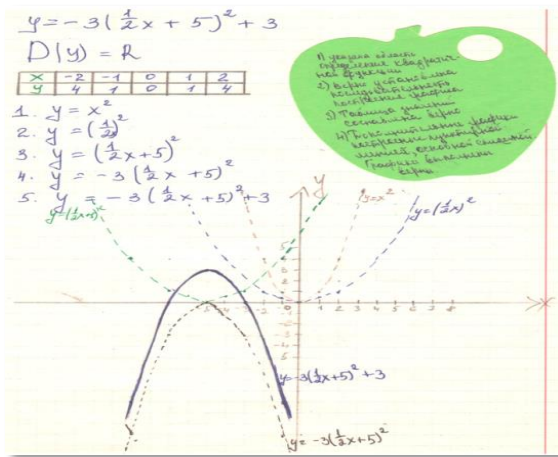 y = -3(1/2x + 5)² + 3
D(y) = R
x -2 -1 0 1 2
y 4 1 0 1 4
1. y = x²
2. y = (1/2)²
3. y = (1/2x+5)²
4. y = -3(1/2x+5)²
5. y = -3(1/2x+5)²+3
1) указана область
определение квадратич-
ной функции
2) Верно установлена
последовательность
построение графика
3) Таблица значений
составлена верно
4) Вспомогательные графики
построены пунктирной
линией, основной сплошной.
Графики выполнены
верно
y
y=(1/2x+5)²
y=x²
y=(1/2x)²
x
1 2 3 4 5 6 7 8
y=-3(1/2x+5)²+3
y=-3(1/2x+5)²